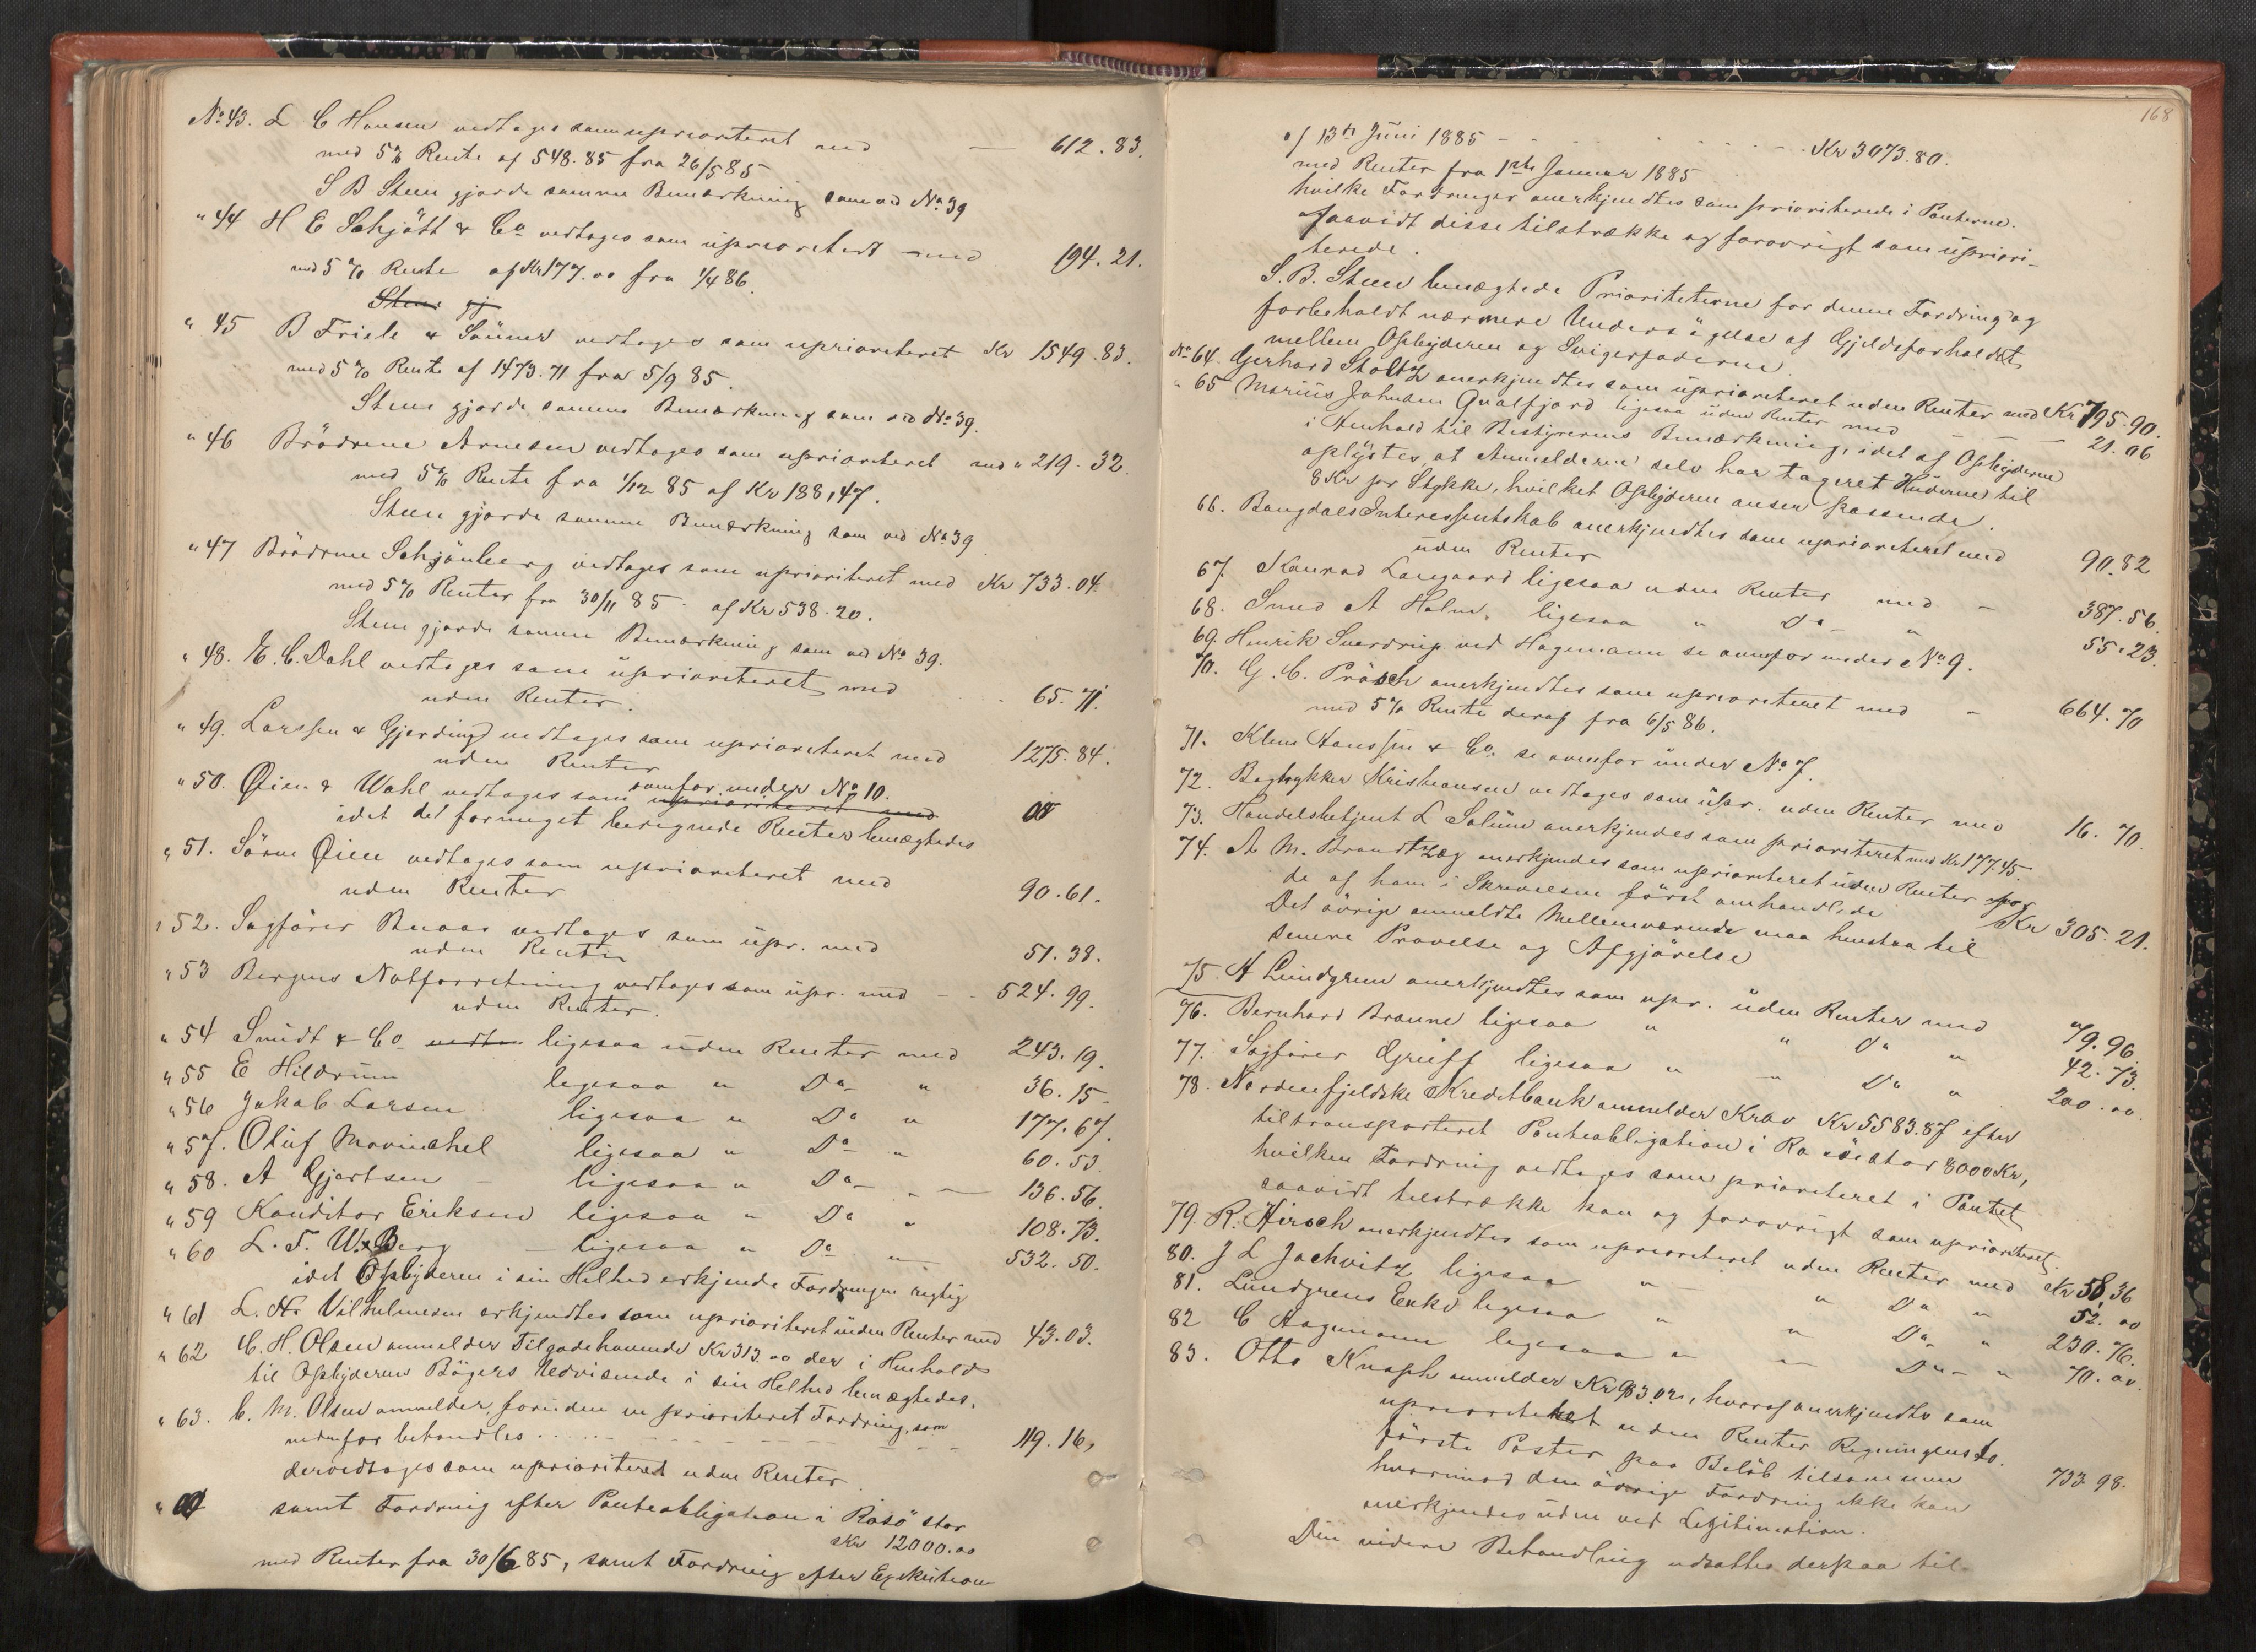 No 43. L C Hansen vedtages som uprioriteret med — 612.83.
med 5% Rente af 548.85 fra 26/5 85
S B Steen gjorde samme Bemærkning som ved No 39
" 44 H E Schjött & Co vedtages som uprioritert med 194.21.
med 5% Rente af Kr 177.00 fra 1/4 86.
Steen gj
" 45 B Friele & Sönner vedtages som uprioriteret Kr 1549.83.
med 5% Rente af 1473.71 fra 5/9 85.
Steen gjorde samme Bemærkning som ved No 39.
" 46 Brödrene Arnesen vedtages som uprioriteret med " 219.32.
med 5% Rente fra 1/12 85 af Kr 188,47.
Steen gjorde samme Bemærkning som ved No 39
" 47 Brödrene Schjönberg vedtages som uprioriteret med Kr 733.04.
med 5% Renter fra 30/11 85 af Kr 538.20.
Steen gjorde samme Bemærkning som ved No 39.
" 48. E. C. Dahl vedtages som uprioriteret med 65.71.
uden Renter.
" 49. Larssen & Gjerding vedtages som uprioriteret med 1275.84.
uden Renter
" 50. Øien & Wahl vedtages som ovenfor under No 10.
uprioriteret med
idet det formeget beregnede Renter benægtedes
" 51. Sörine Øien vedtages som uprioriteret med 90.61.
uden Renter
" 52. Sagförer Buaas vedtages som upr. med 51.38.
uden Renter
" 53 Bergens Notforretning vedtages som upr. med 524.99.
uden Renter.
" 54 Smidt & Co vedta ligesaa uden Renter med 243.19.
" 55 E Hildrum ligesaa " Do " 36.15
" 56 Jakob Larsen ligesaa " Do " 177.67.
" 57. Oluf Movinckel ligesaa " Do " 60.53.
" 58. A Gjertsen — ligesaa " Do " — 136.56.
" 59 Konditor Eriksen ligesaa " Do " 108.73.
" 60 L. F. W. Berg — ligesaa " Do " 532.50.
idet Opbyderen i sin Helhed erkjendte Fordringen rigtig
" 61 L. Hr Vilhelmsen erkjendtes som uprioriteret uden Renter med 43.03.
" 62 C. H. Olsen anmelder Tilgodehavende Kr 313.00 der i Henhold
til Opbyderens Bögers Udvisende i sin Helhed benægtedes.
" 63. C. M. Olsen anmelder, foruden en prioriteret Fordring, som
nedenfor behandles 119.16,
der vedtages som uprioriteret uden Renter.
samt Fordring efter Panteobligation i Rosö stor
Kr 12000.00
med Renter fra 30/6 85, samt Fordring efter Exekution
168
af 13de Juni 1885 - Kr 3073.80.
med Renter fra 1ste Januar 1885
hvilke Fordringer anerkjendtes som prioriterede i Panterne.
saavidt disse tilstrække og forövrigt som upriori-
terede.
S. B. Steen benægtede Prioriteterne for denne Fordring og
forbeholdt nærmere Undersögelse af Gjeldsforholdet
mellem Opbyderen og Svigerfaderen.
No 64. Gerhard Stoltz anerkjendtes som uprioriteret uden Renter med Kr 795.90.
" 65 Marius Johnsen Qvalfjord ligesaa uden Renter med — 21.06
i Henhold til Bestyrerens Bemærkning, idet af Opbyderen
oplystes, at Anmelderen selv har taxeret Huderne til
8 Kr pr Stykke, hvilket Opbyderen anser passende.
66. Bangdals Interessentskab anerkjendtes som uprioriteret med 90.82
uden Renter
67. Konrad Langaard ligesaa uden Renter med — 387.56.
68. Smed A Holm, ligesaa " Do " 55.23.
69. Henrik Sverdrup ved Hagemann se ovenfor under No 9.
70. G. C. Prösch anerkjendtes som uprioriteret med — 664.70
med 5% Rente deraf fra 6/5 86.
71. Klem Hanssen & Co. se ovenfor under No 7.
72. Bogtrykker Kristiansen vedtages som upr. uden Renter med 16.70.
73. Handelsbetjent L Solum anerkjendes som prioriteret med Kr 177.45.
74. A M. Brandtzæg anerkjendes som uprioriteret uden Renter for
de af ham i Skrivelsen först omhandlede Kr 305.21.
Det övrige anmeldte Mellemværende maa henstaa til
senere Prövelse og Afgjörelse
75. A Lundgreen anerkjendtes som upr. uden Renter med 79.96
76. Bernhard Braune ligesaa " " Do " 42.73.
77. Sagförer Greiff ligesaa " " Do " 200.00.
78. Nordenfjeldske Kreditbank anmelder Krav Kr 5583.87 efter
tiltransporteret Panteobligation i Rosö stor 8000 Kr,
hvilken Fordring vedtages som prioriteret i Pantet,
saavidt tilstrække kan og forövrigt som uprioriteret.
79. R. Hirsch anerkjendtes som uprioriteret uden Renter med Kr 58.36
80. J L Jachvitz ligesaa " " Do " 52.00
81. Lundgrens Enke ligesaa " " Do " 230.76.
82 C Hagemann ligesaa " " Do " 70.00.
83. Otto Knoph anmelder Kr 983.02, hvoraf anerkjendtes som
uprioriteret uden Renter Regningens to.
förste Poster paa Belöb tilsammen 733.98.
hvorimod den övrige Fordring ikke kan
anerkjendes uden ved Legitimation.
Den videre Behandling udsattes derpaa til